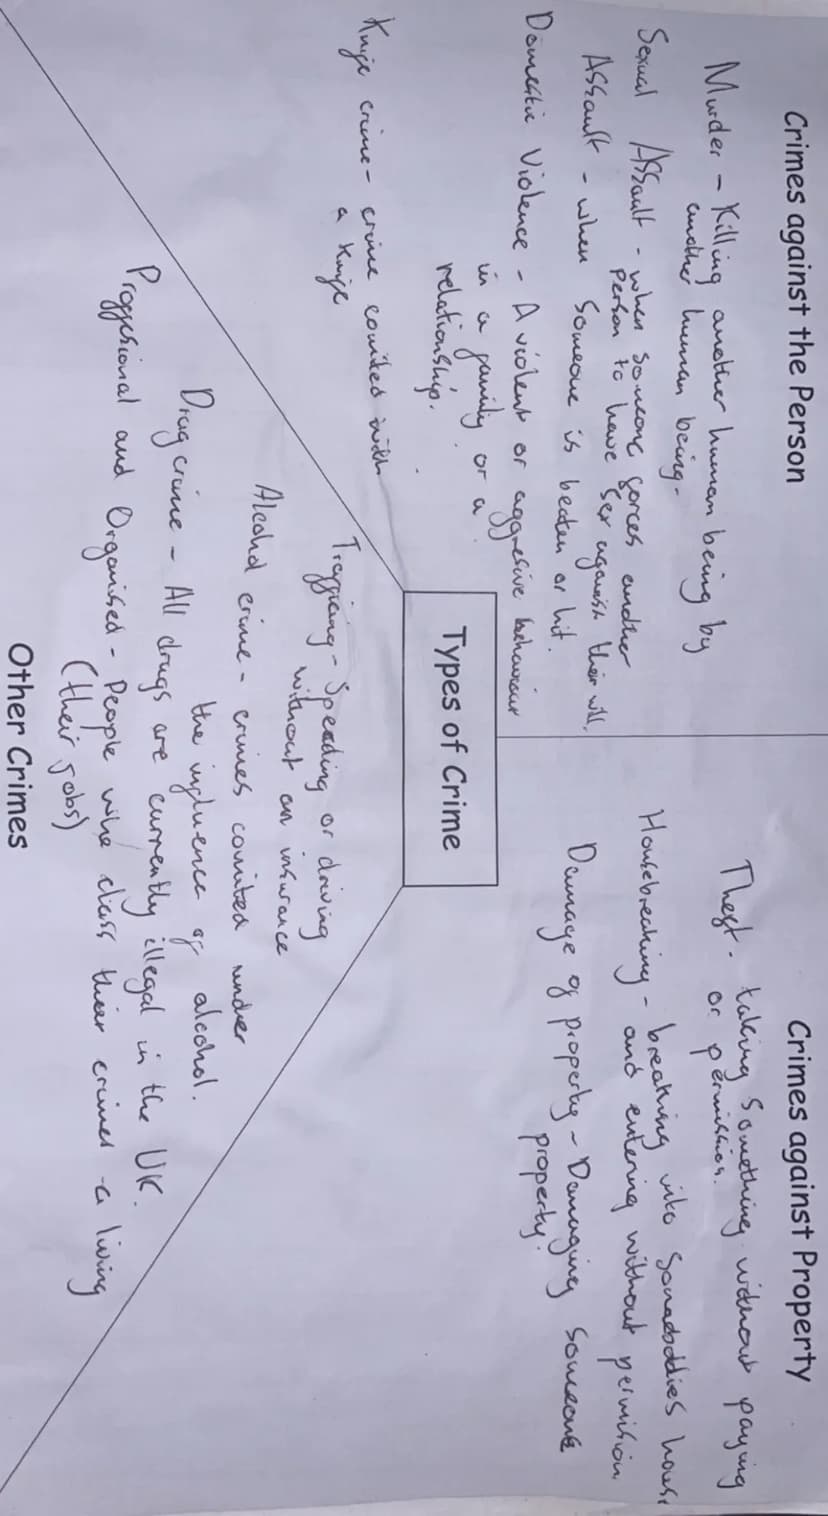 Crimes against the Person
Murder - Killing another human being by
another human being.
Sexual Assault - when someone forces another
person to have sex against their will.
Assault - when someone is beaten or hit.
Domestic Violence - A violent or aggresive behaviour
in a family or a
relationship.
Knife crime - crime comited with
a knife
Crimes against Property
Theft - taking something without paying
or permission.
Housebreaking - breaking into house
and entering without permision
Damage of property - Damaging someone
property.
Types of Crime
Speeding or driving
without an insurance
Alcohol crime - crimes comited under
the influence of alcohol.
Drug crime - All drugs are currently illegal in the UK.
and Organised - People who class their crimes a living
(their jobs)
Other Crimes